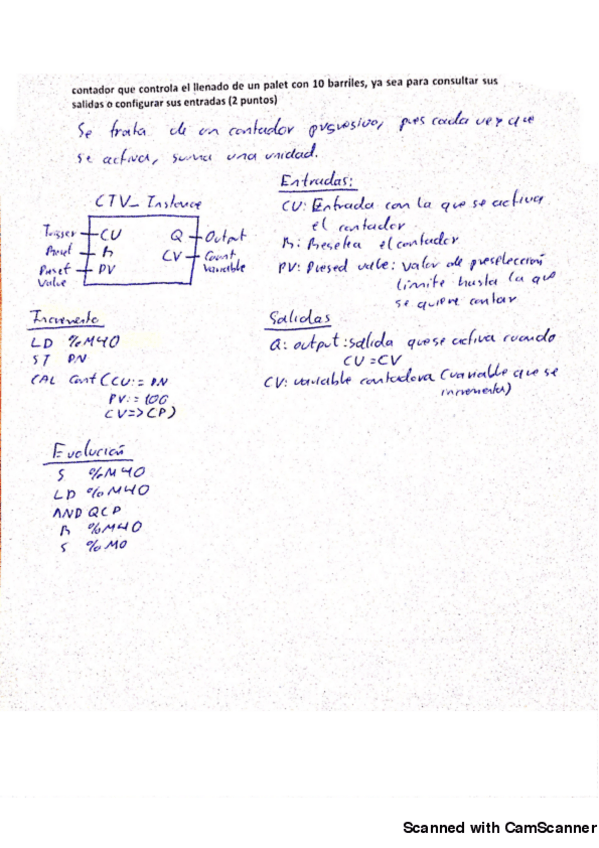 contador que controla el llenado de un palet con 10 barriles, ya sea para consultar sus
salidas o configurar sus entradas (2 puntos)
Se trata de un contador progresivo, pues cada vez que
se activa, suma una unidad.
CTV_Instance
Trigger CU Q Output
Reset R CV Count
Variable
Preset PV
Value
Entradas:
CU: Entrada con la que se activa
el contador
R: Resetea el contador
PV: Presed value: valor de preselección
límite hasta la que
se quiere contar
Incremento
LD %M40
ST PN
CAL Cont (CU:= PN
PV:= 10
CV=> CP)
Salidas
Q: output: salida que se activa cuando
CU = CV
CV: variable contadora (variable que se
incrementa)
Evolución
S %M40
LD %M40
AND QCP
R %M40
S %M0
Scanned with CamScanner